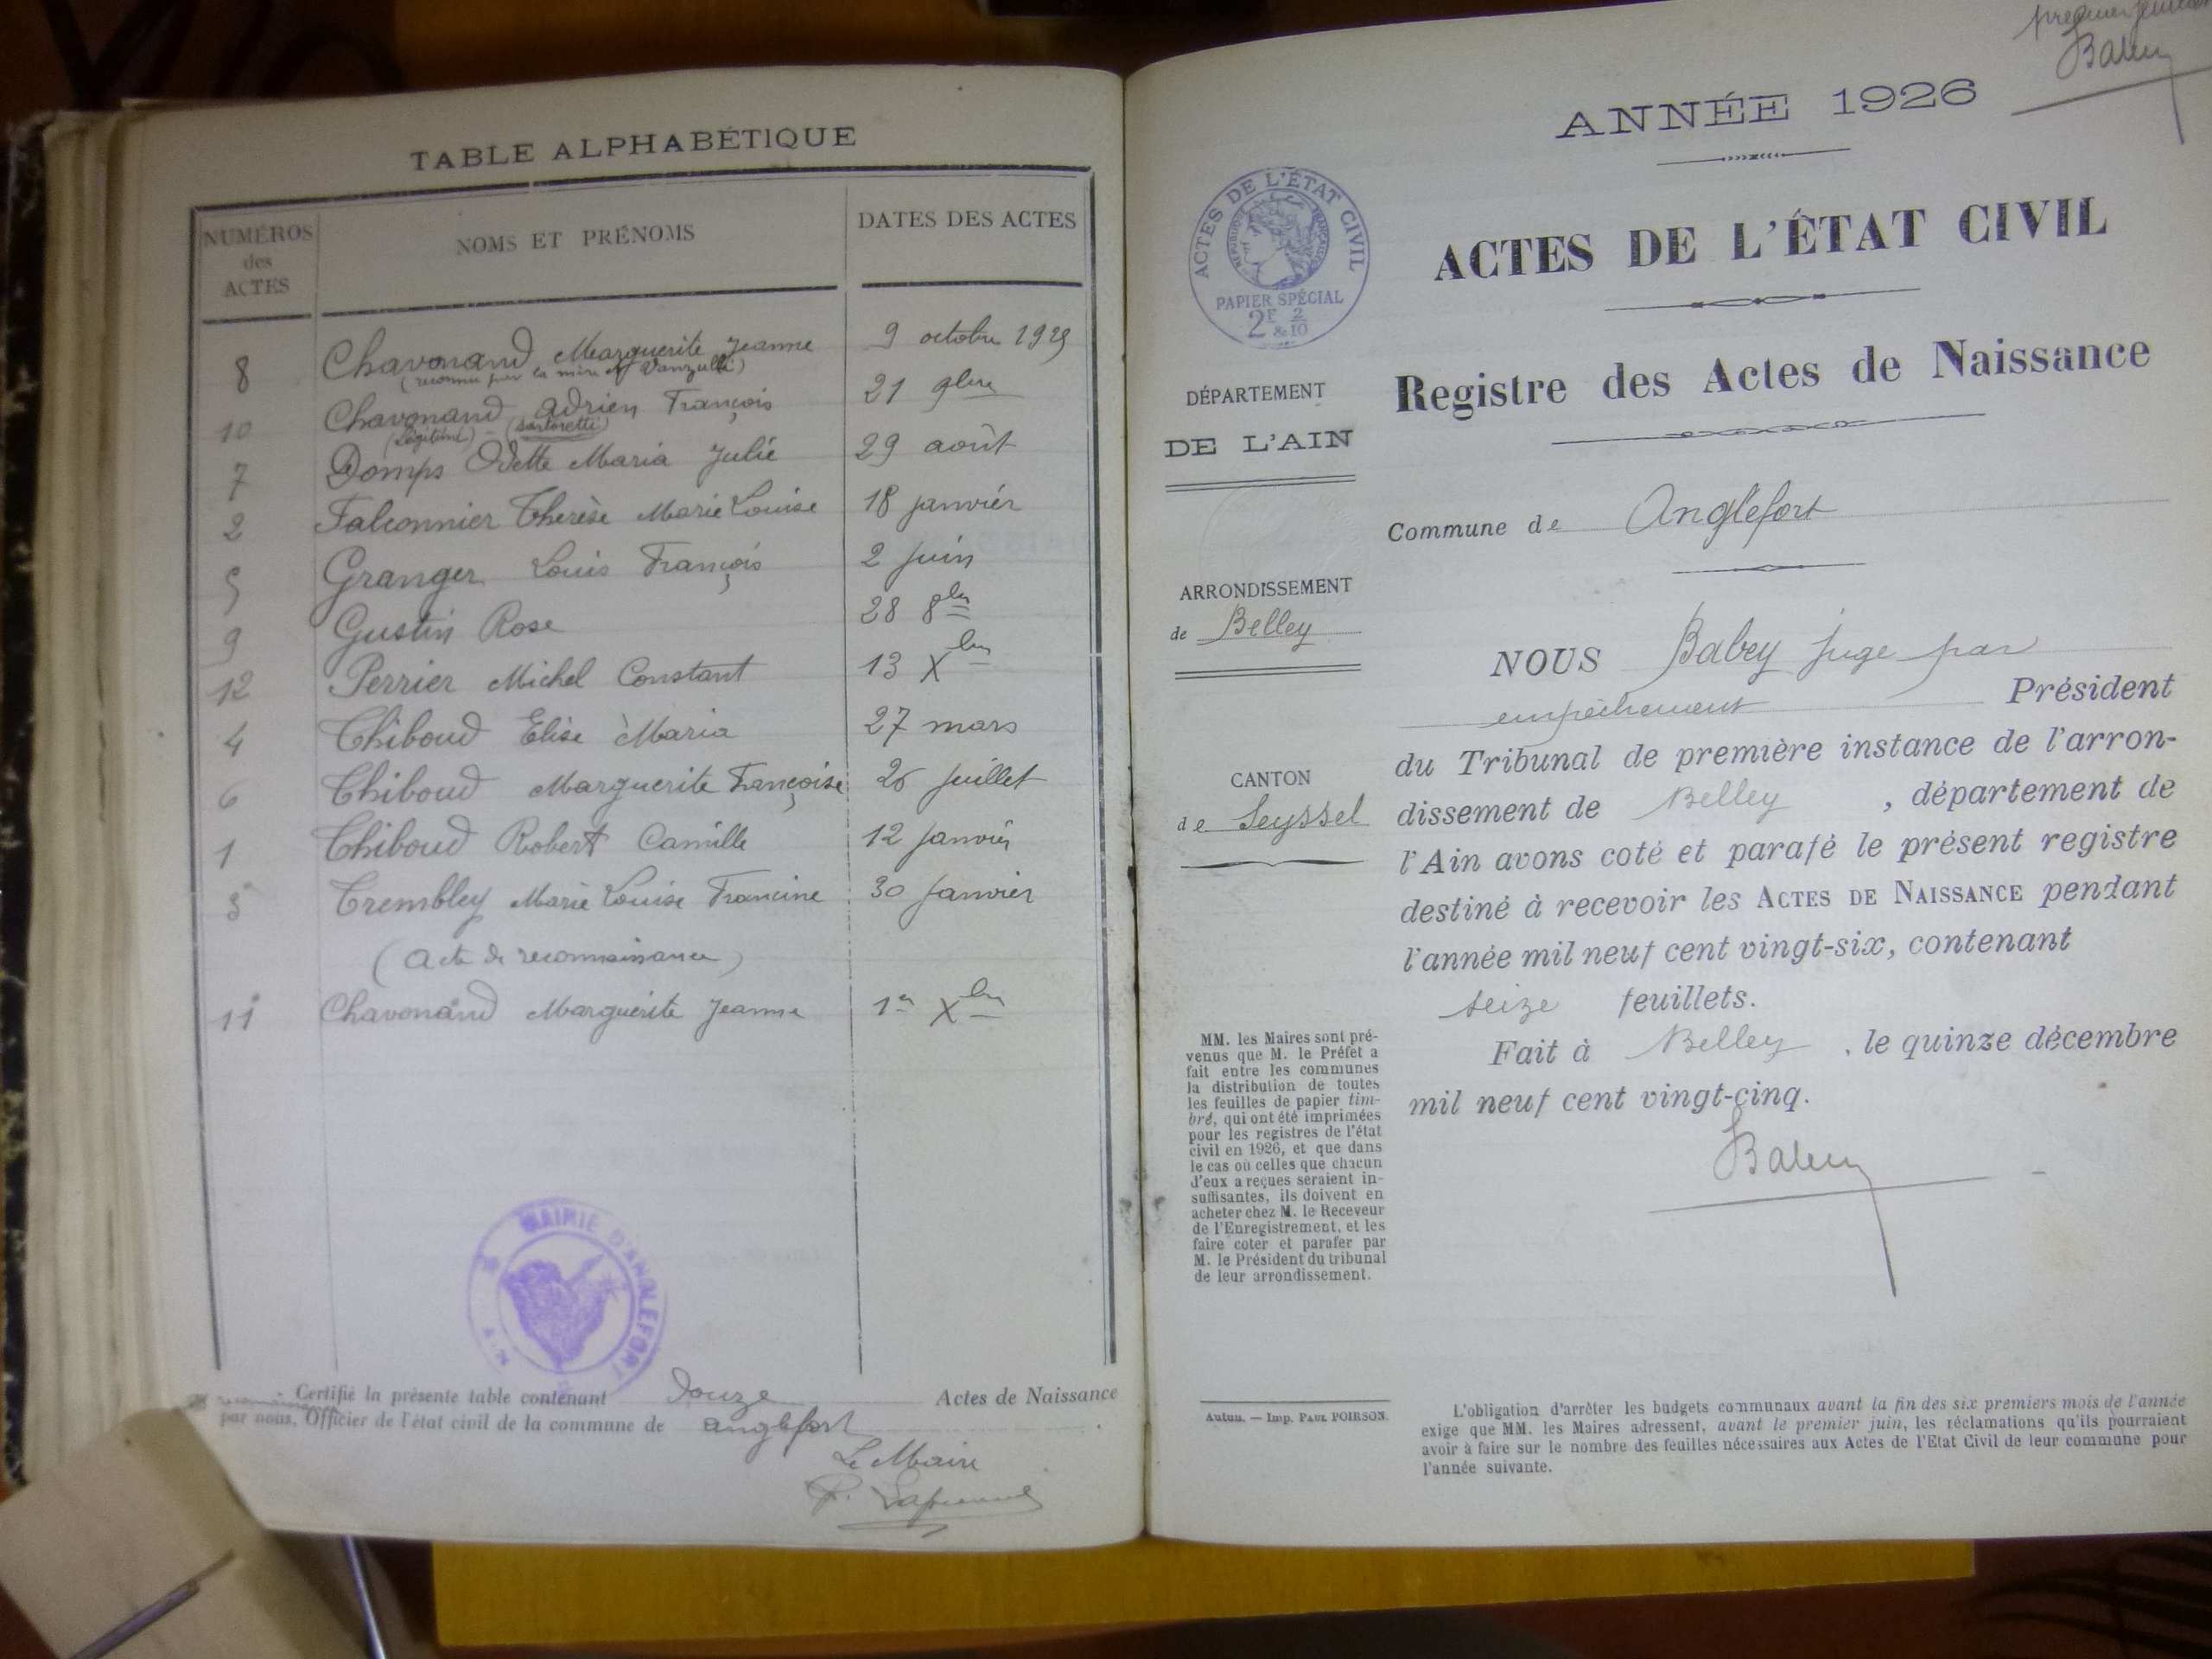 TABLE ALPHABÉTIQUE
NUMÉROS des ACTES NOMS ET PRÉNOMS DATES DES ACTES
8 Chavonand Marguerite Jeanne 9 octobre 1925
(reconnue par la mère
10 Chavonand Adrien François 21 9bre
(Légitimé) - (Sartoretti)
7 Domps Odette Maria Julie 29 août
2 Falconnier Thérèse Marie Louise 18 janvier
5 Granger Louis François 2 juin
9 Gustin Rose 28 8bre
12 Perrier Michel Constant 13 Xbre
4 Thiboud Elise Maria 27 mars
6 Thiboud Marguerite Françoise 26 juillet
1 Thiboud Robert Camille 12 janvier
3 Trembley Marie Louise Francine 30 janvier
(acte de reconnaissance)
11 Chavonand Marguerite Jeanne 1er Xbre
MAIRIE D'ANGLEFORT
AIN
Certifié la présente table contenant douze Actes de Naissance
par nous, Officier de l'état civil de la commune de Anglefort
Le Maire
premier feuillet
Babey
ANNÉE 1926
ACTES DE L'ÉTAT CIVIL
RÉPUBLIQUE FRANÇAISE
PAPIER SPÉCIAL
2F & 2/10
ACTES DE L'ÉTAT CIVIL
Registre des Actes de Naissance
DÉPARTEMENT
DE L'AIN
Commune de Anglefort
ARRONDISSEMENT
de Belley
CANTON
de Seyssel
NOUS Babey juge par
empêchement Président
du Tribunal de première instance de l'arron-
dissement de Belley, département de
l'Ain avons coté et parafé le présent registre
destiné à recevoir les ACTES DE NAISSANCE pendant
l'année mil neuf cent vingt-six, contenant
seize feuillets.
Fait à Belley, le quinze décembre
mil neuf cent vingt-cinq.
Babey
MM. les Maires sont pré-
venus que M. le Préfet a
fait entre les communes
la distribution de toutes
les feuilles de papier tim-
bré, qui ont été imprimées
pour les registres de l'état
civil en 1926, et que dans
le cas ou celles que chacun
d'eux a reçues seraient in-
suffisantes, ils doivent en
acheter chez M. le Receveur
de l'Enregistrement, et les
faire coter et parafer par
M. le Président du tribunal
de leur arrondissement.
Autun. — Imp. PAUL POIRSON.
L'obligation d'arrêter les budgets communaux avant la fin des six premiers mois de l'année
exige que MM. les Maires adressent, avant le premier juin, les réclamations qu'ils pourraient
avoir à faire sur le nombre des feuilles nécessaires aux Actes de l'Etat Civil de leur commune pour
l'année suivante.